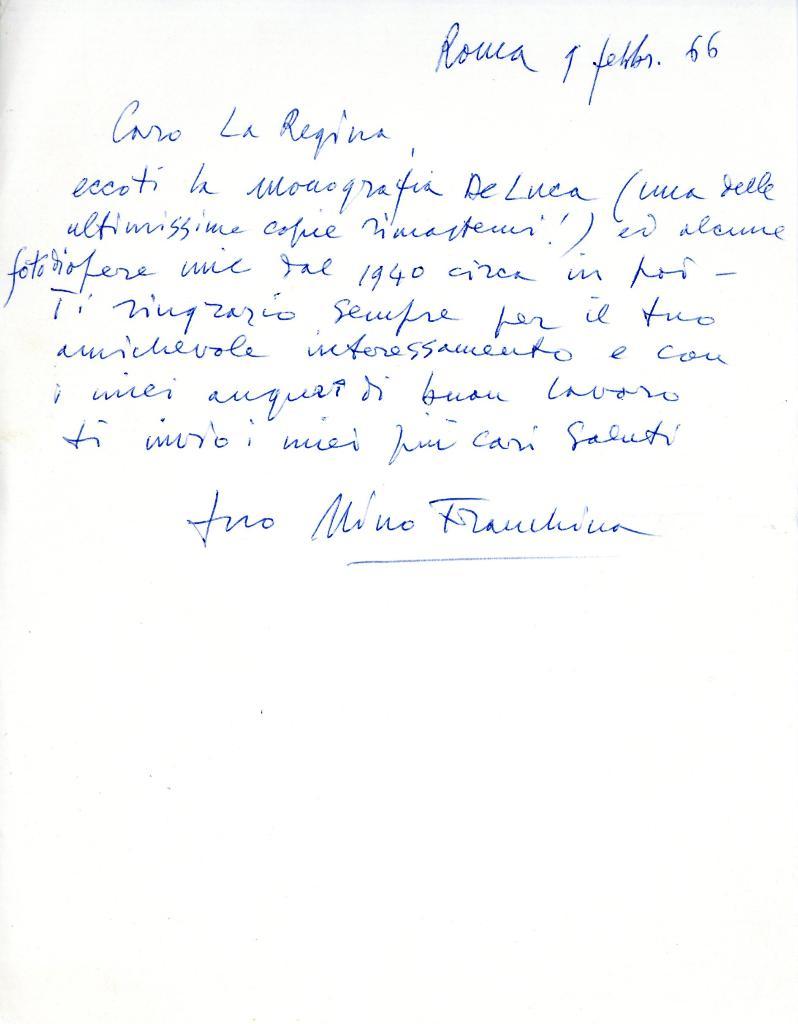 Roma 9 febbr. 66
Caro La Regina,
eccoti la monografia De Luca (una delle
ultimissime copie rimastemi!) ed alcune
foto di opere mie dal 1940 circa in poi –
Ti ringrazio sempre per il tuo
amichevole interessamento e con
i miei auguri di buon lavoro
ti invio i miei più cari saluti
tuo Nino Franchina